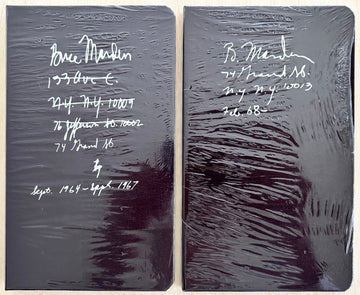 Brice Marden
133 Ave C.
N.Y. N.Y. 10009
76 Jefferson St. 10002
74 Grand St.
by
Sept. 1964 - Sept. 1967
B. Marden
74 Grand St.
N.Y. N.Y. 10013
Feb. 68-